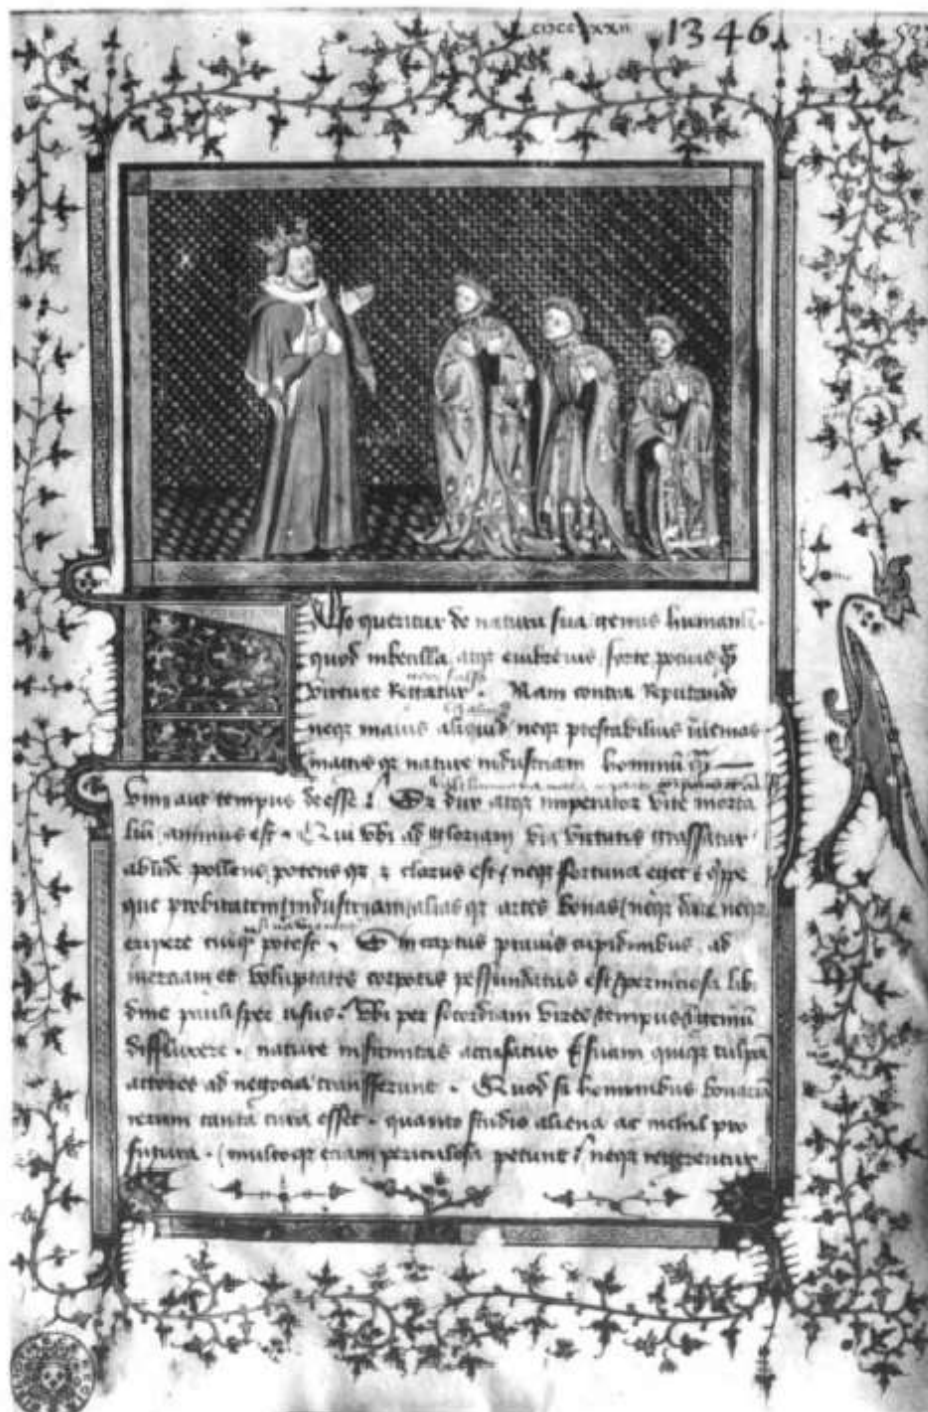 1346
also queritur de natura sua genus humanu
quod inbecilla atqꝫ eui breuis forte potius qͫ
virtute Regatur . Nam contra Reputando
neqꝫ maius aliquid neqꝫ prestabilius inuenias
magis qꝫ nature industriam hominū qͫ
vim aut tempus deesse . Sz dux atqꝫ imperator vite morta
liū animus est . Qui vbi ad gloriam via virtutis grassatur
abunde pollens potens qꝫ z clarus est neqꝫ fortuna eget
que probitatem industriam alias qꝫ artes bonas neqꝫ dare neqꝫ
eripere cuiqꝫ potest . Sin captus prauis cupidinibus ad
inerciam et voluptates corporis pessundatus est perniciosa libi
dine paulisper usus . vbi per socordiam vires tempus
diffluxere . nature infirmitas accusatur suam quiqꝫ culpā
actores ad negocia transferunt . Quod si hominibus bonarū
rerum tanta cura esset . quanto studio aliena ac nichil pro
futura . multo qꝫ etiam periculosa petunt neqꝫ regerentur